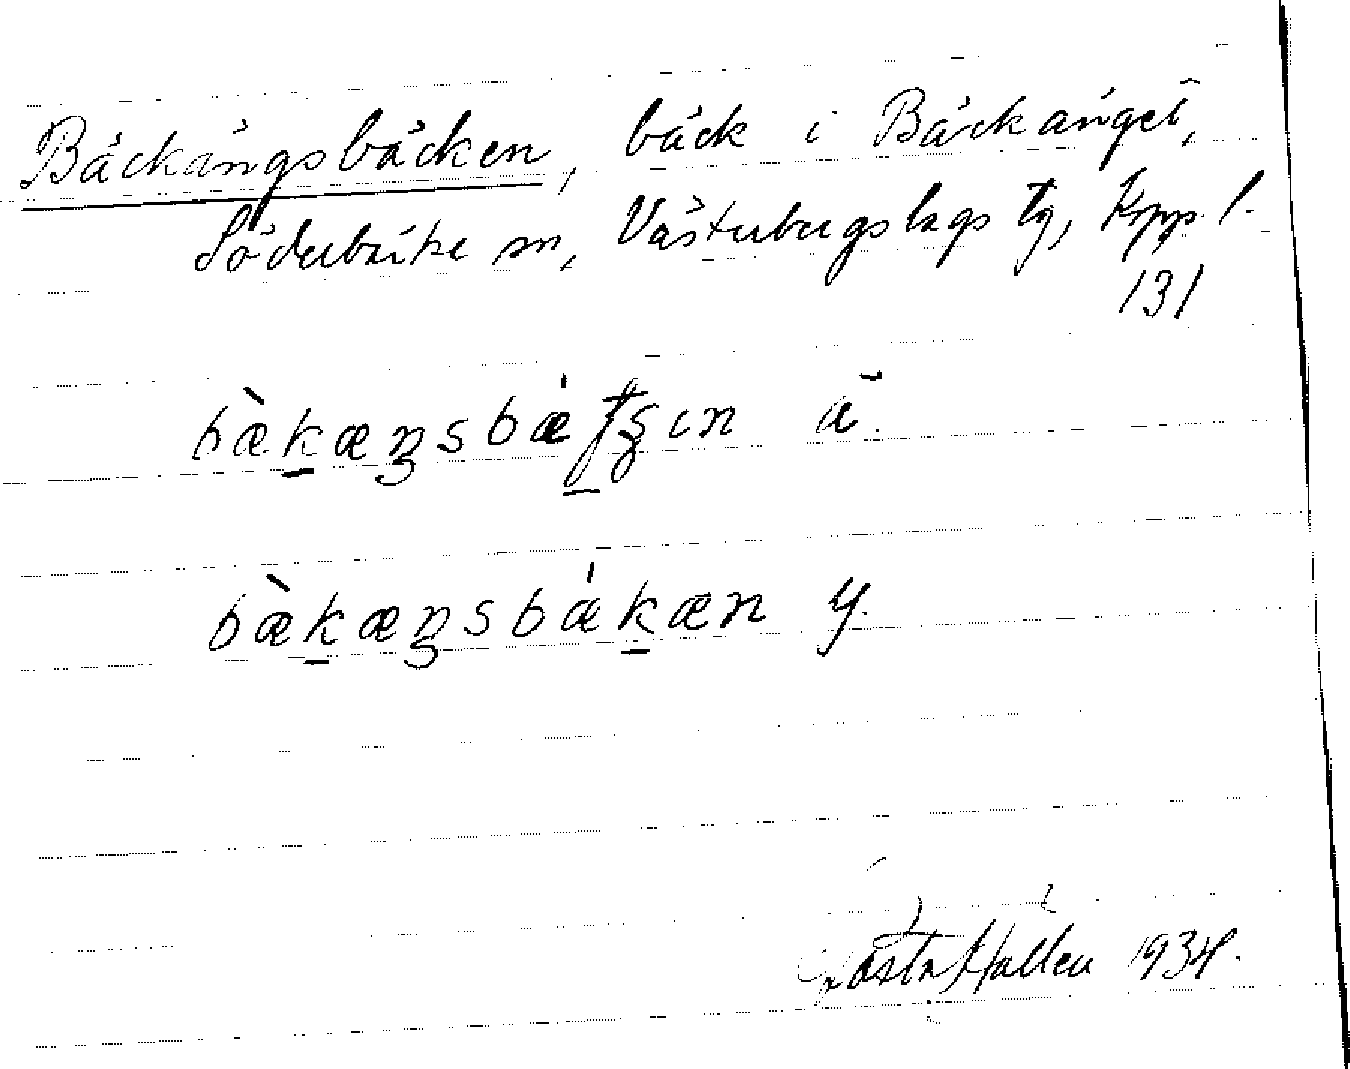 Bäckängsbäcken, bäck i Bäckänget,
Söderbärke sn, Västerbergslags tg, Kopp. l.
131
bæ̀kæŋsbæ̍ ın ä.
bæ̀kæŋsbæ̍kæn y.
Gösta Hallén 1934.